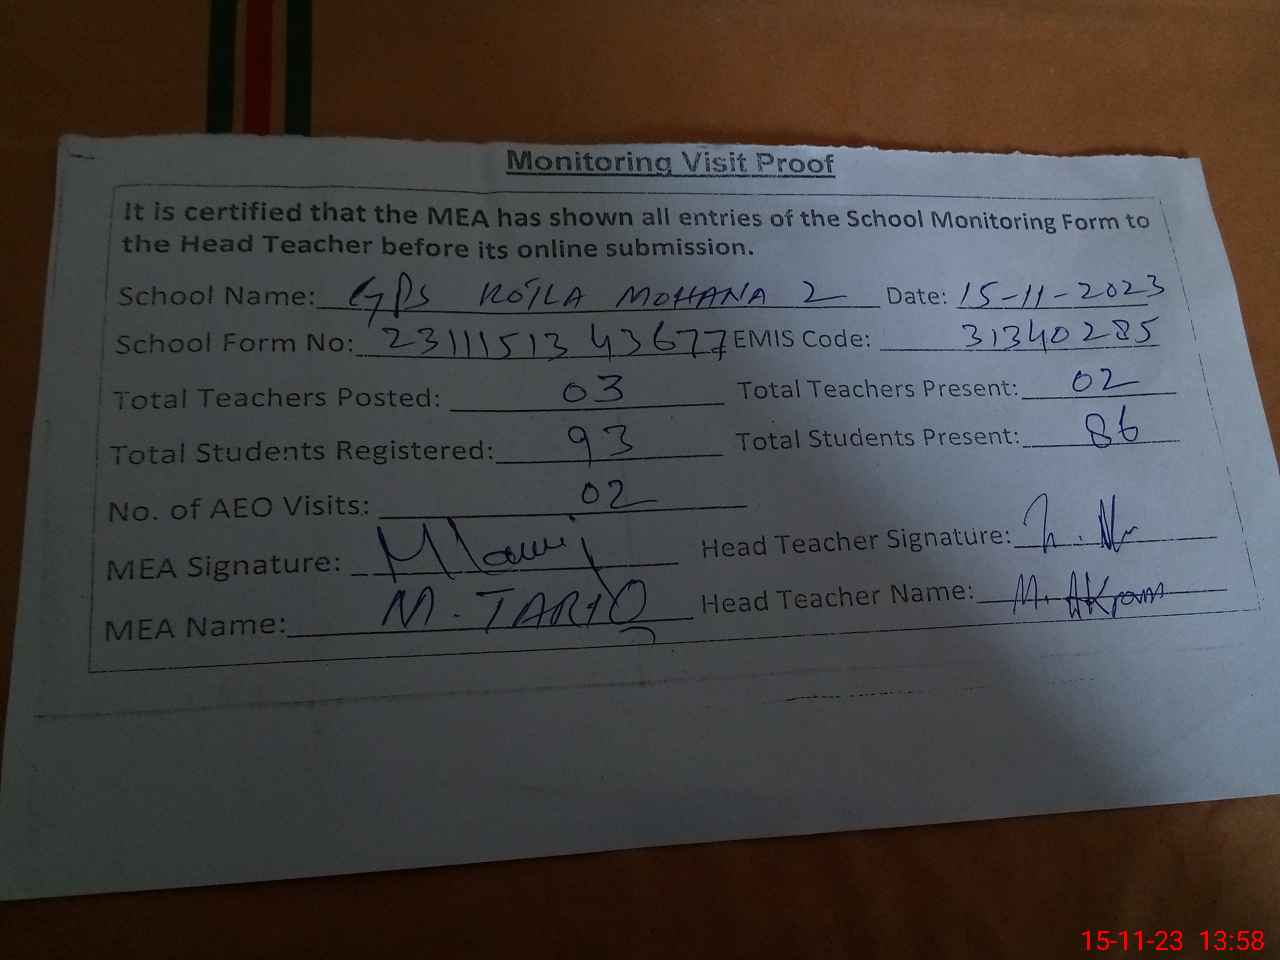 Monitoring Visit Proof
It is certified that the MEA has shown all entries of the School Monitoring Form to
the Head Teacher before its online submission.
School Name: GPS KOTLA MOHANA 2 Date: 15-11-2023
School Form No: 23111513 43677 EMIS Code: 31340285
Total Teachers Posted: 03 Total Teachers Present: 02
Total Students Registered: 93 Total Students Present: 86
No. of AEO Visits: 02
MEA Signature: Head Teacher Signature:
MEA Name: M. TARIQ Head Teacher Name: M. AKram
15-11-23 13:58